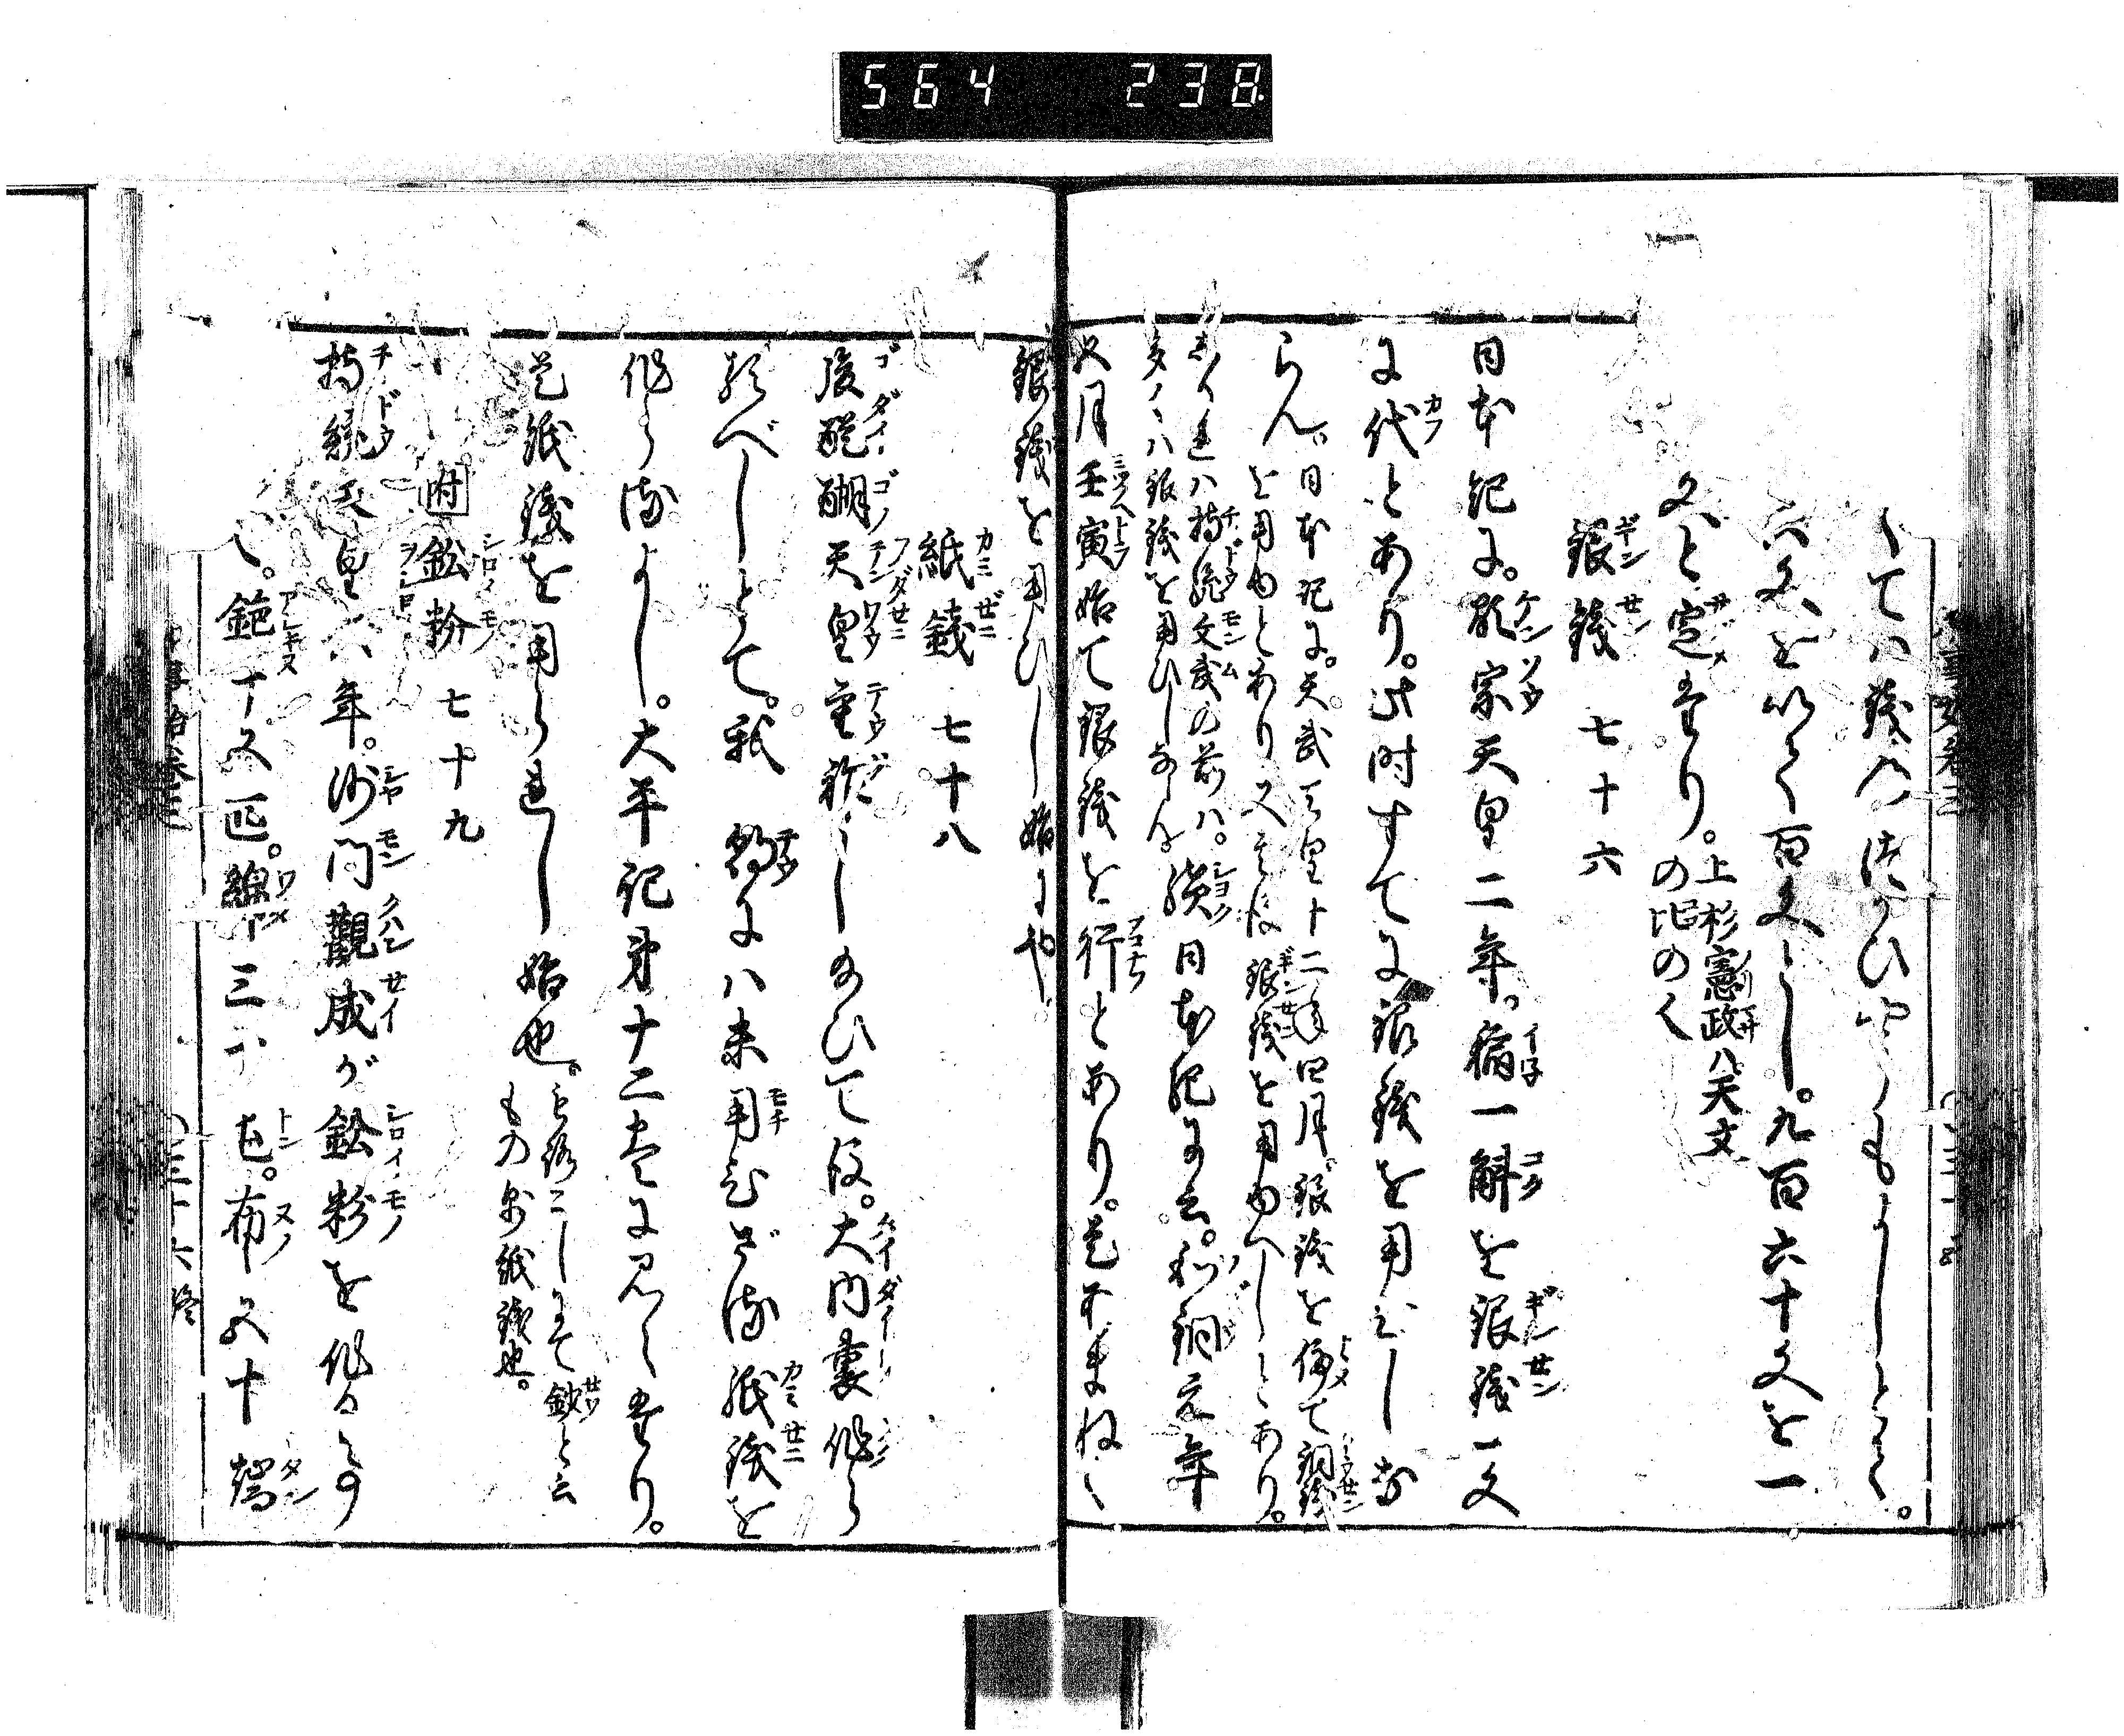 564 238
くてハ銭の法つひやくもよしとて。
六文を以て百文とし。九百六十文を一
文と定たり。上杉憲政ハ天文
の比の人
銀銭 七十六
日本紀に。顕宗天皇二年。稲一斛を銀銭一文
に代とあり。此時すてに銀銭を用ひしな
らん。日本記に。天武天皇十二年四月。銀銭を停て銅銭
を用ゆとあり又其後銀銭を用ゆへしとあり。
しかれハ持統文武の前ハ。
多くハ銀銭を用ひしならん。
續日本紀に云。和銅元年
五月壬寅始て銀銭を行とあり。是あまねく
銀銭を用ひし始にや。
紙錢 七十八
後醍醐天皇重祚ましまひて後。大内裏作ら
るべしとて。我朝にハ未用ひざる紙銭を
作らるよし。大平記第十二巻に見えたり。
是紙銭を用られし始也。
もの即紙銭也。
附 鉛粉 七十九
持統天皇六年。沙門觀成が鉛粉を作るを
く。絁十五匹。綿三十屯。布五十端